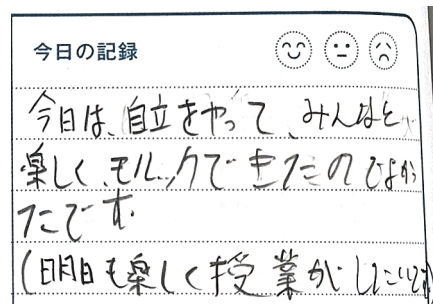 今日の記録
今日は、自立をやって、みんなと
楽しく、モルックできたのでよかっ
たです。
(明日も楽しく授業がしたいです